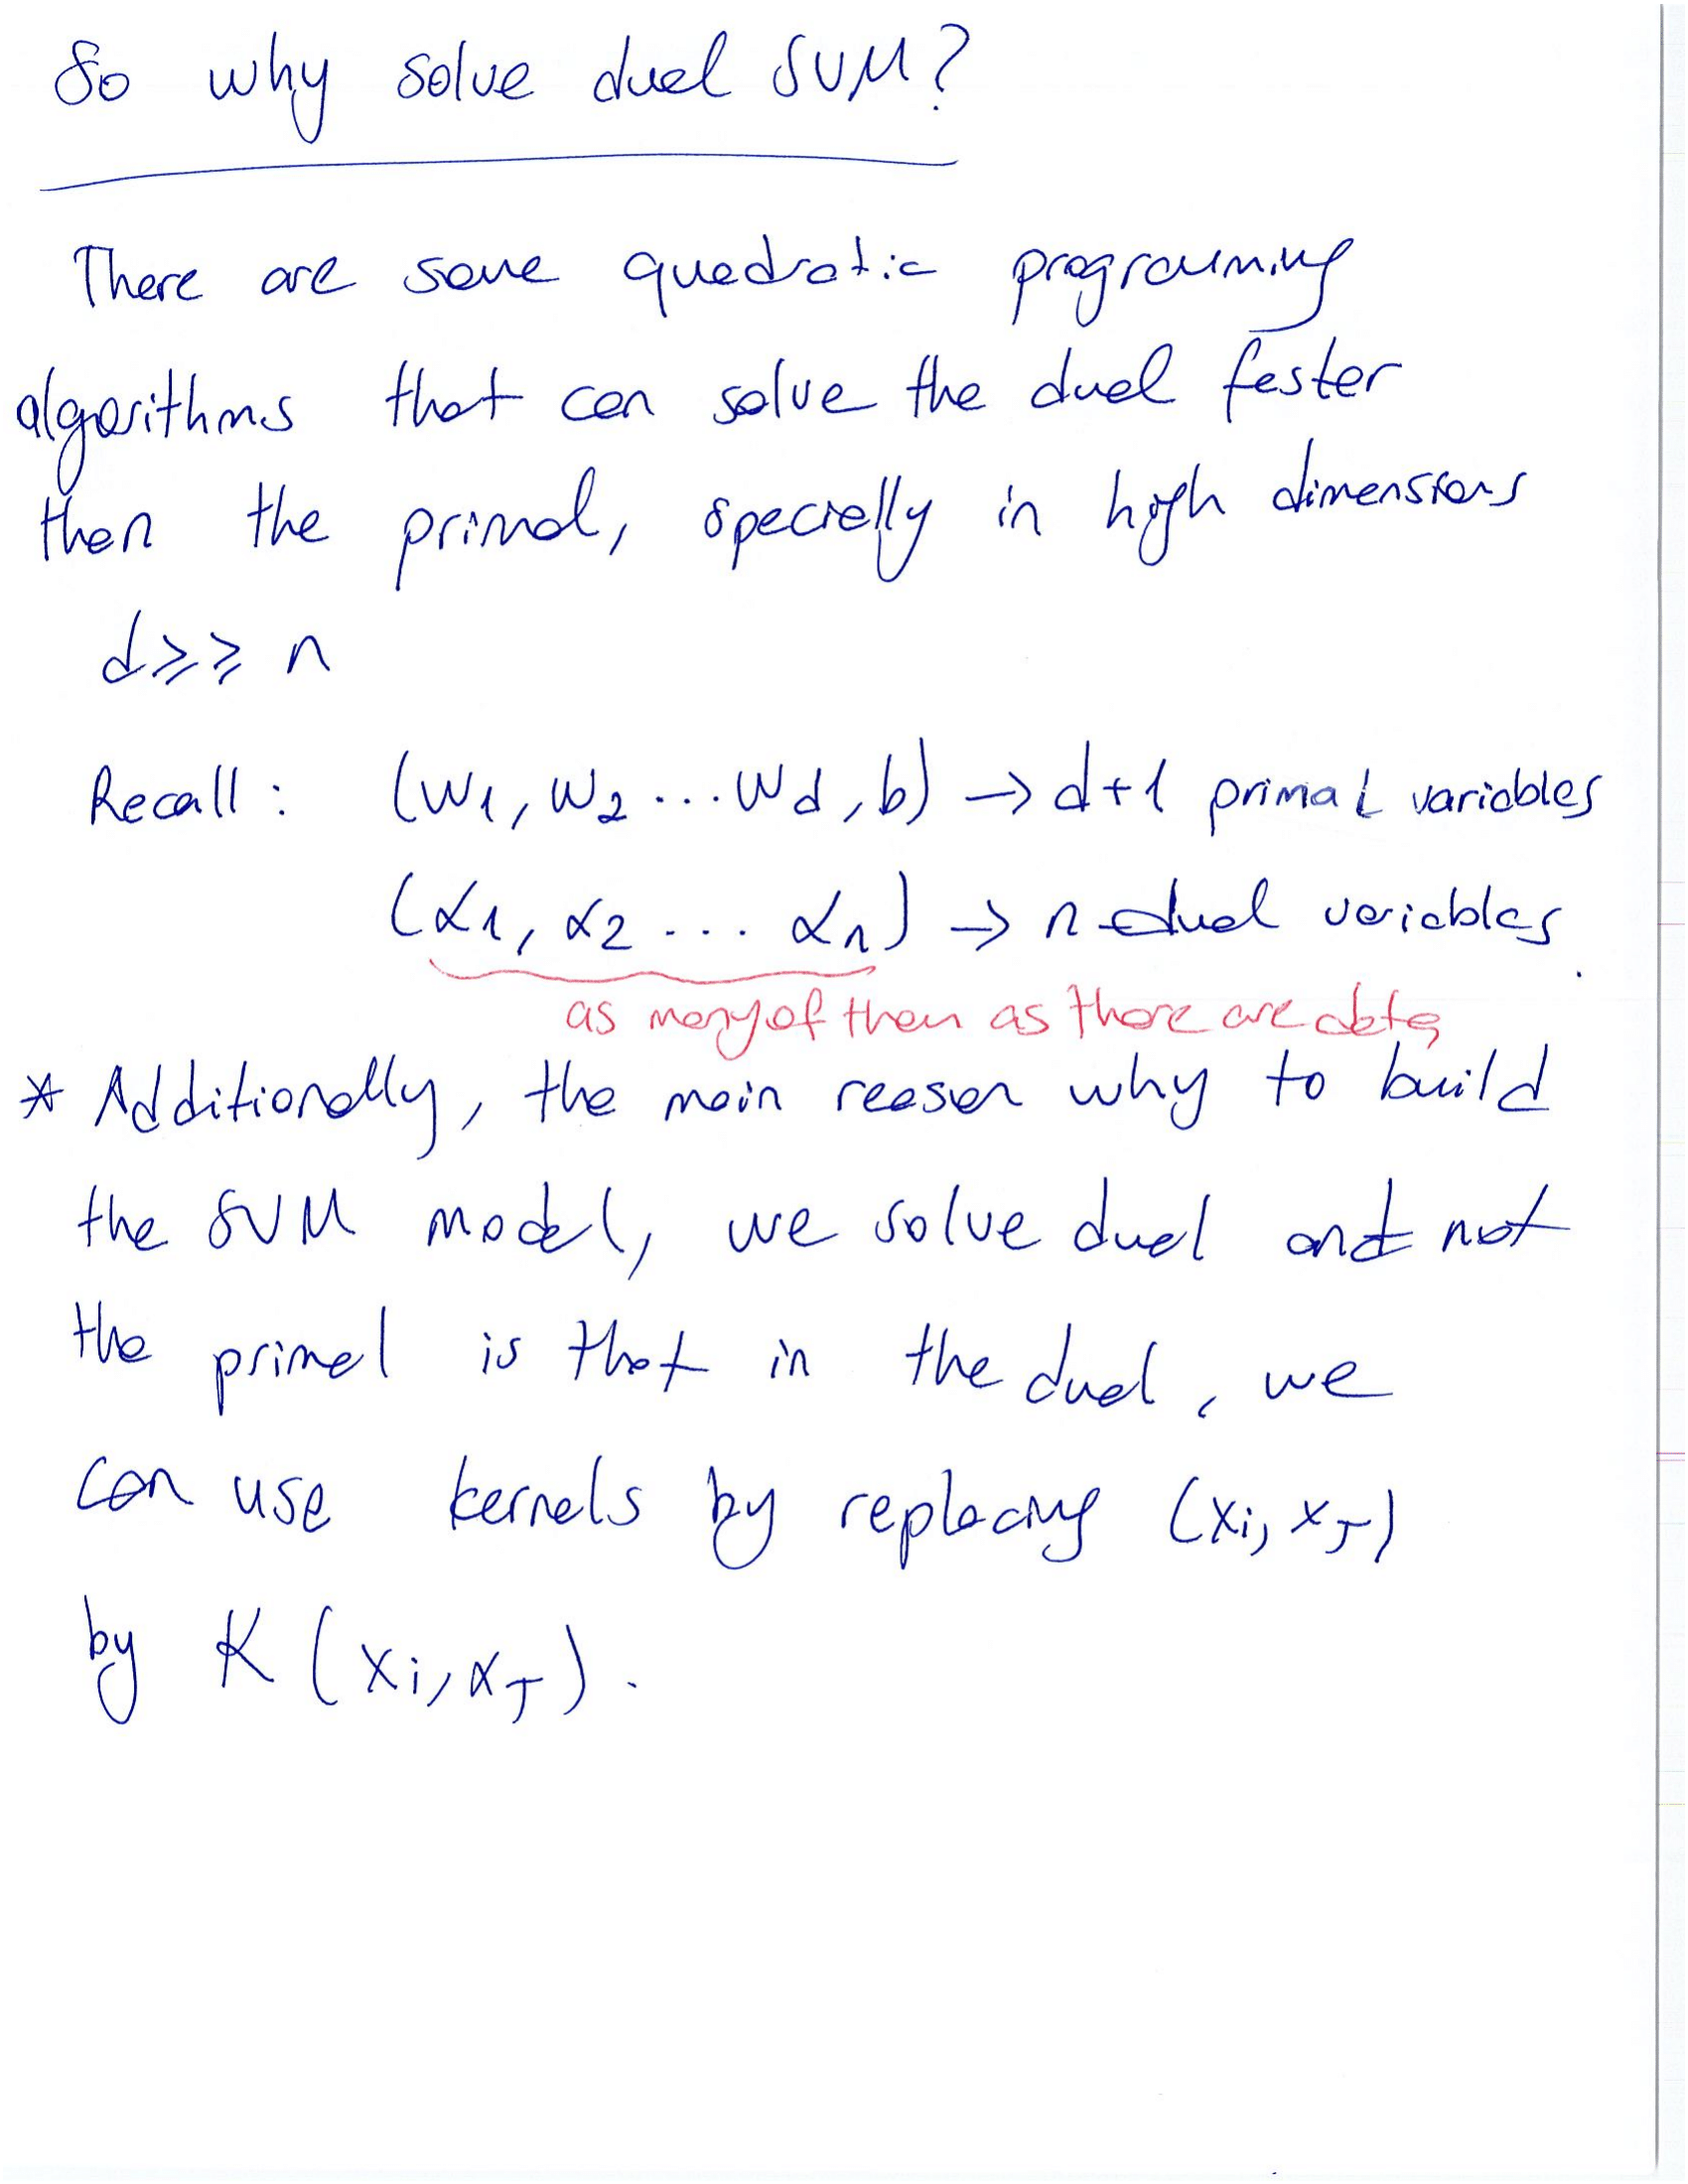 So why solve dual SVM?
There are some quadratic programming
algorithms that can solve the dual faster
than the primal, specially in high dimensions
d ⩾⩾ n
Recall: (w1, w2 ... wd, b) → d+1 primal variables
(α1, α2 ... αn) → n dual variables.
as many of them as there are data
* Additionally, the main reason why to build
the SVM model, we solve dual and not
the primal is that in the dual, we
can use kernels by replacing (xi, xJ)
by K (xi, xJ).